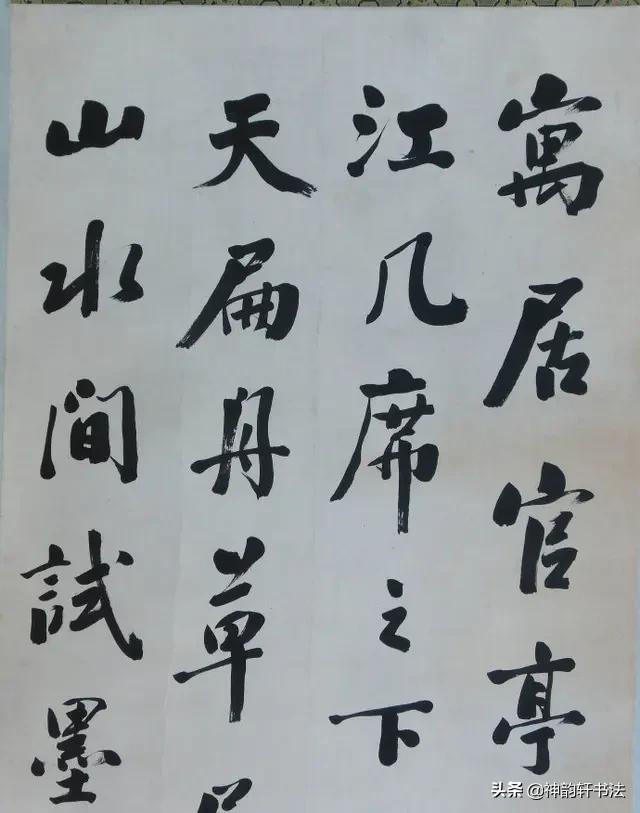 寓居官亭
江几席之下
天扁舟草
山水间試墨
头条 @神韵轩书法